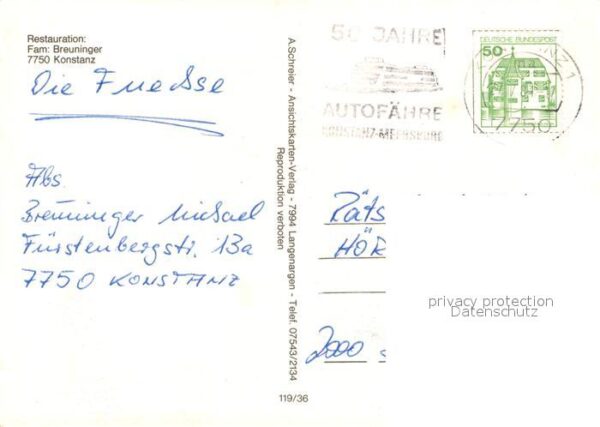 Restauration:
Fam: Breuninger
7750 Konstanz
Die Fuechse
Abs.
Breuninger Michael
Fürstenbergstr. 13a
7750 KONSTANZ
A.Schreier - Ansichtskarten-Verlag - 7994 Langenargen - Telef. 07543/2134
Reproduktion verboten
119/36
50 JAHRE
AUTOFÄHRE
KONSTANZ-MEERSBURG
DEUTSCHE BUNDESPOST
50
7750
Räts
HÖR
2000
privacy protection
Datenschutz